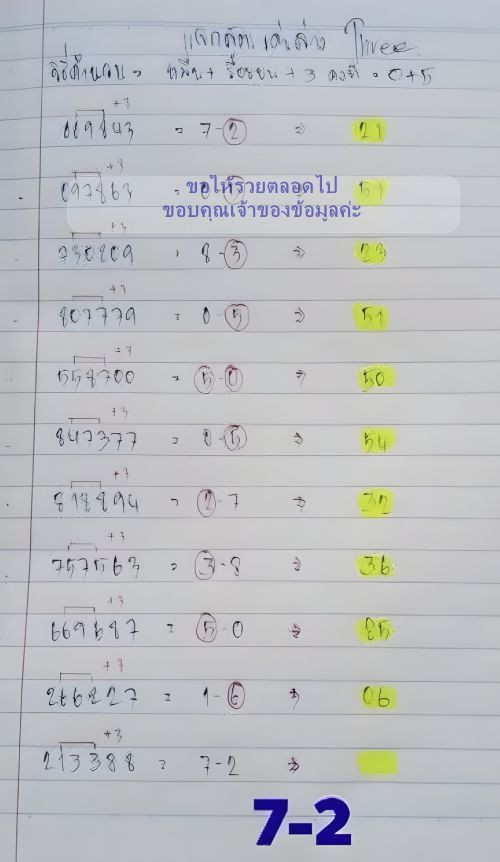 แจกสูตร เด่นล่าง Three
วิธีคำนวน = หมื่น + ร้อย + 3 คงที่ = 0+5
+3
669843 = 7-2 ⇒ 21
+3
097863 = 0 ⇒ 51
ขอให้รวยตลอดไป
ขอบคุณเจ้าของข้อมูลค่ะ
+3
730209 = 8-3 ⇒ 23
+3
807779 = 0-5 ⇒ 51
+3
558700 = 5-0 ⇒ 50
+3
847377 = 0-5 ⇒ 54
+3
818894 = 2-7 ⇒ 32
+3
757563 = 3-8 ⇒ 36
+3
669687 = 5-0 ⇒ 85
+3
266227 = 1-6 ⇒ 06
+3
213388 = 7-2 ⇒
7-2